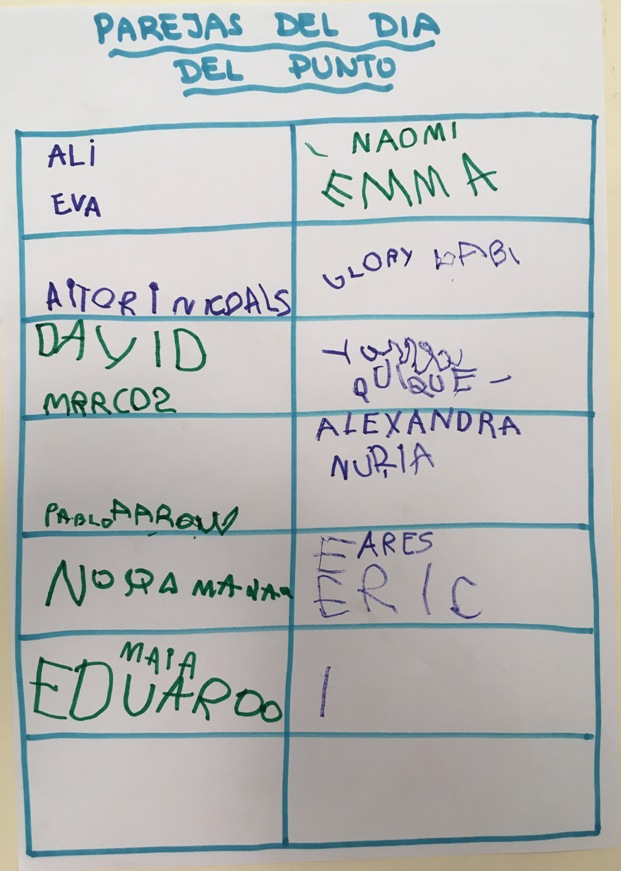 PAREJAS DEL DIA
DEL PUNTO
ALI
EVA
NAOMI
EMMA
AITOR I NICOALS
GLORY GABI
DAVID
MARCOS
QUIQUE
PABLO AARON
ALEXANDRA
NURIA
NORA MANAR
E ARES
ERIC
MAIA
EDUARDO
I